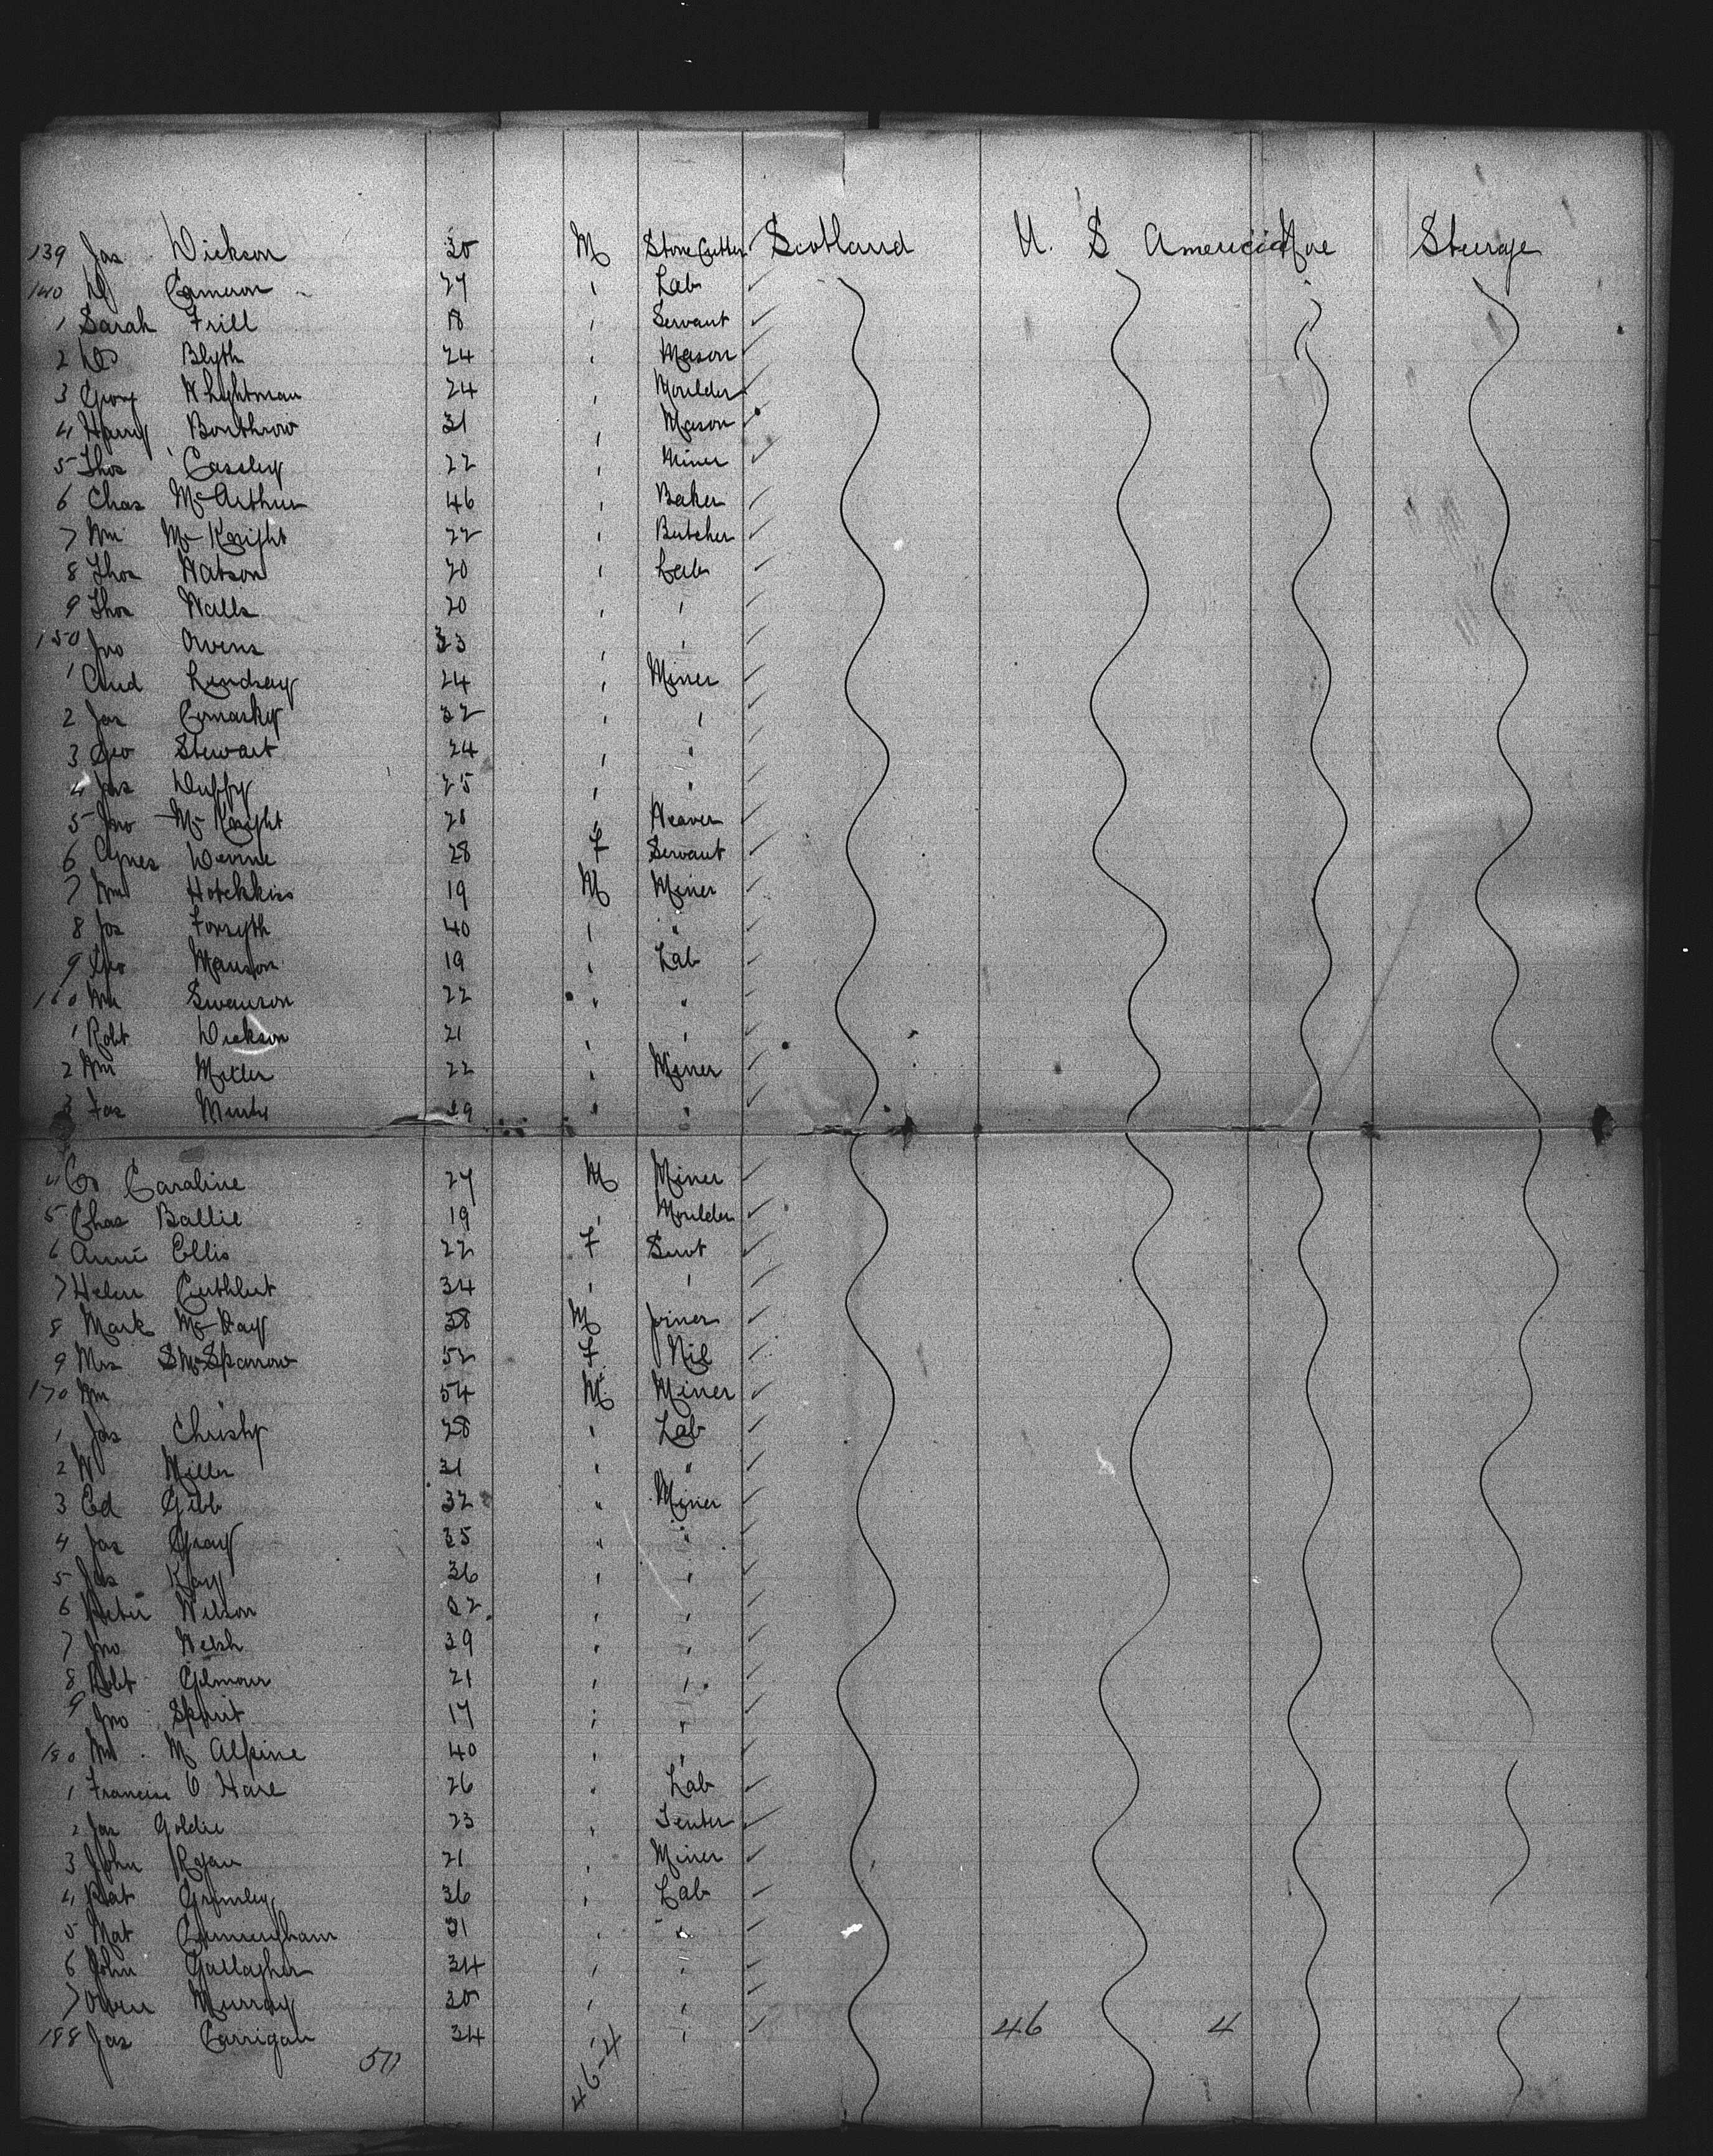 139 Jas Dickson 30 M Stone Cutter Scotland U. S America Nae Steerage
140 D Cameron 27 " Lab
1 Sarah Frill 18 " Servant
2 Blyth 24 " Mason
3 Geo Whightman 24 " Moulder
4 Harry Bonthrow 31 " Mason
5 Thos Cassley 22 " Miner
6 Chas McArthur 46 " Baker
7 Wm McKnight 22 " Butcher
8 Thos Watson 20 " Lab
9 Thos Walls 20 " "
150 Jno Owens 33 " "
1 And Lindsay 24 " Miner
2 Jas Comasky 32 " "
3 Geo Stewart 24 " "
4 Jas Duffy 25 " "
5 Jno McKnight 20 " Weaver
6 Agnes Devine 28 F Servant
7 Wm Hotchkiss 19 M Miner
8 Jas Forsyth 40 " "
9 Geo Manson 19 " Lab
160 Wm Swanson 22 " "
1 Robt Dickson 21 " "
2 Wm Miller 22 " Miner
3 Jas 29 " "
4 Caraline 27 M Miner
5 Chas Ballie 19 " Moulder
6 Annie Ellis 22 F Servt
7 Helen Cuthbert 34 " "
8 Mark McKay 38 M Joiner
9 Mrs McSparrow 52 F Nil
170 Wm " 54 M Miner
1 Jas Christy 28 " Lab
2 W Miller 31 " "
3 Ed Gibb 32 " Miner
4 Jas Gray 35 " "
5 Jas Kay 36 " "
6 Peter Wilson 32 " "
7 Jno Welsh 39 " "
8 Robt Gilmour 21 " "
9 Jno Spruit 17 " "
180 Wm Mc Alpine 40 " "
1 Francis O Hare 26 " Lab
2 Jas Goldie 23 " Tenter
3 John Ryan 21 " Miner
4 Pat Gormley 36 " Lab
5 Mat Cunningham 31 " "
6 John Gallagher 34 " "
7 Owen Murray 30 " "
188 Jas Carrigan 34 " " 46 4
50 46-4